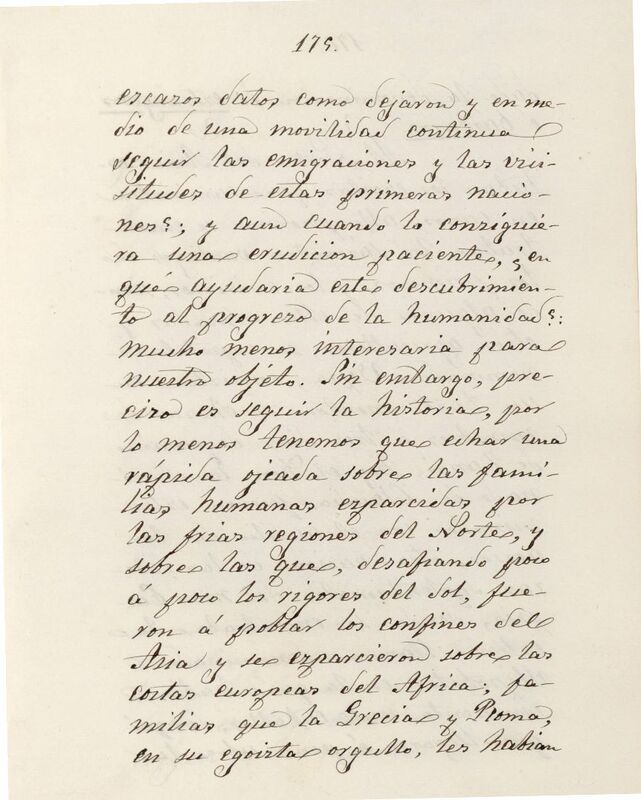 175.
escazos datos como dejaron y en me-
dio de una movilidad continua
seguir las emigraciones y las vici-
situdes de estas primeras nacio-
nes?; y aun cuando lo consiguie-
ra una erudicion paciente, ¿en
qué ayudaria este descubrimien-
to al progrezo de la humanidad?:
mucho menos interezaria para
nuestro objéto. Sin embargo, pre-
cizo es seguir la historia, por
lo menos tenemos que echar una
rápida ojeada sobre las fami-
lias humanas ezparcidas por
las frias regiones del Norte, y
sobre las que, desafiando poco
á poco los rigores del Sol, fue-
ron á poblar los confines del
Asia y se ezparcieron sobre las
costas europeas del Africa; fa-
milias que la Grecia y Roma,
en su egoizta orgullo, les habian